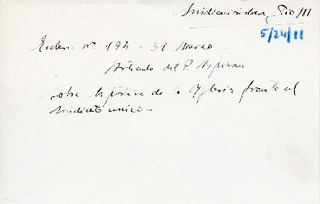 5/24/11
Ecclesia nº 194 - 31 Marzo
Artículo del P. Azpiazu
sobre la postura de la Iglesia frente al
sindicato único.